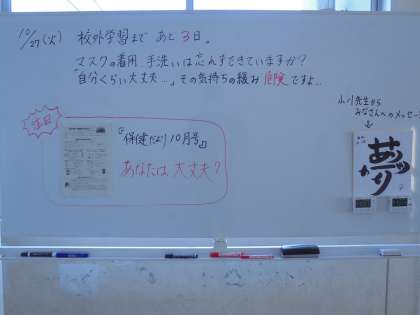 10/27(火) 校外学習まで あと 3日。
マスクの着用、手洗いは忘れずできていますか?
「自分くらい大丈夫…」その気持ちの緩み 危険ですよ…
山川先生から
みなさんへのメッセージ
↓
注目
『保健だより10月号』
あなたは大丈夫?